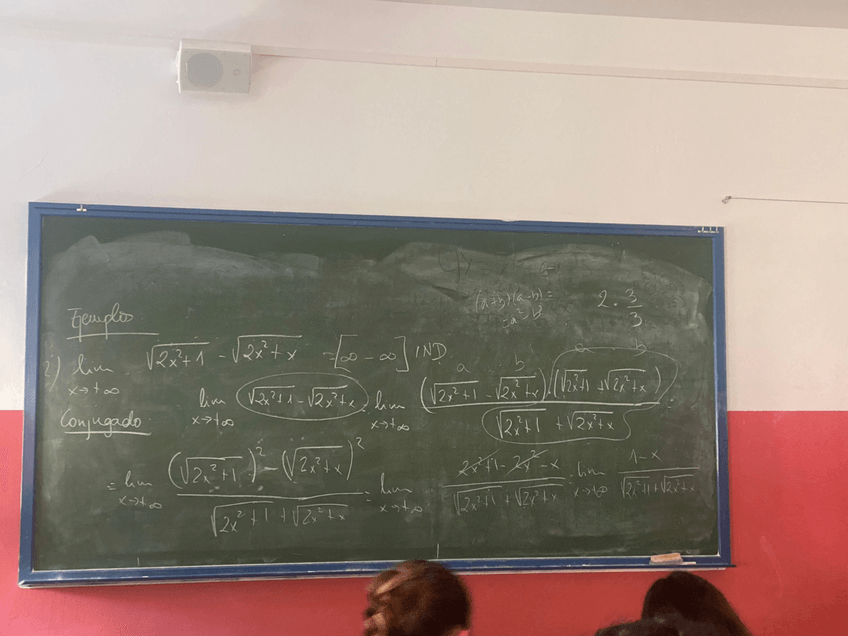 (a+b)(a-b)=
=a²-b²
2 · 3/3
Ejemplos
i) lim x→+∞ √(2x²+1) - √(2x²+x) = [∞ - ∞] IND
a b a b
Conjugado
lim x→+∞ (√(2x²+1) - √(2x²+x)) = lim x→+∞ (√(2x²+1) - √(2x²+x)) · (√(2x²+1) + √(2x²+x)) / (√(2x²+1) + √(2x²+x))
= lim x→+∞ ((√(2x²+1))² - (√(2x²+x))²) / (√(2x²+1) + √(2x²+x)) = lim x→+∞ (2x²+1-2x²-x) / (√(2x²+1) + √(2x²+x)) = lim x→+∞ (1-x) / (√(2x²+1) + √(2x²+x))